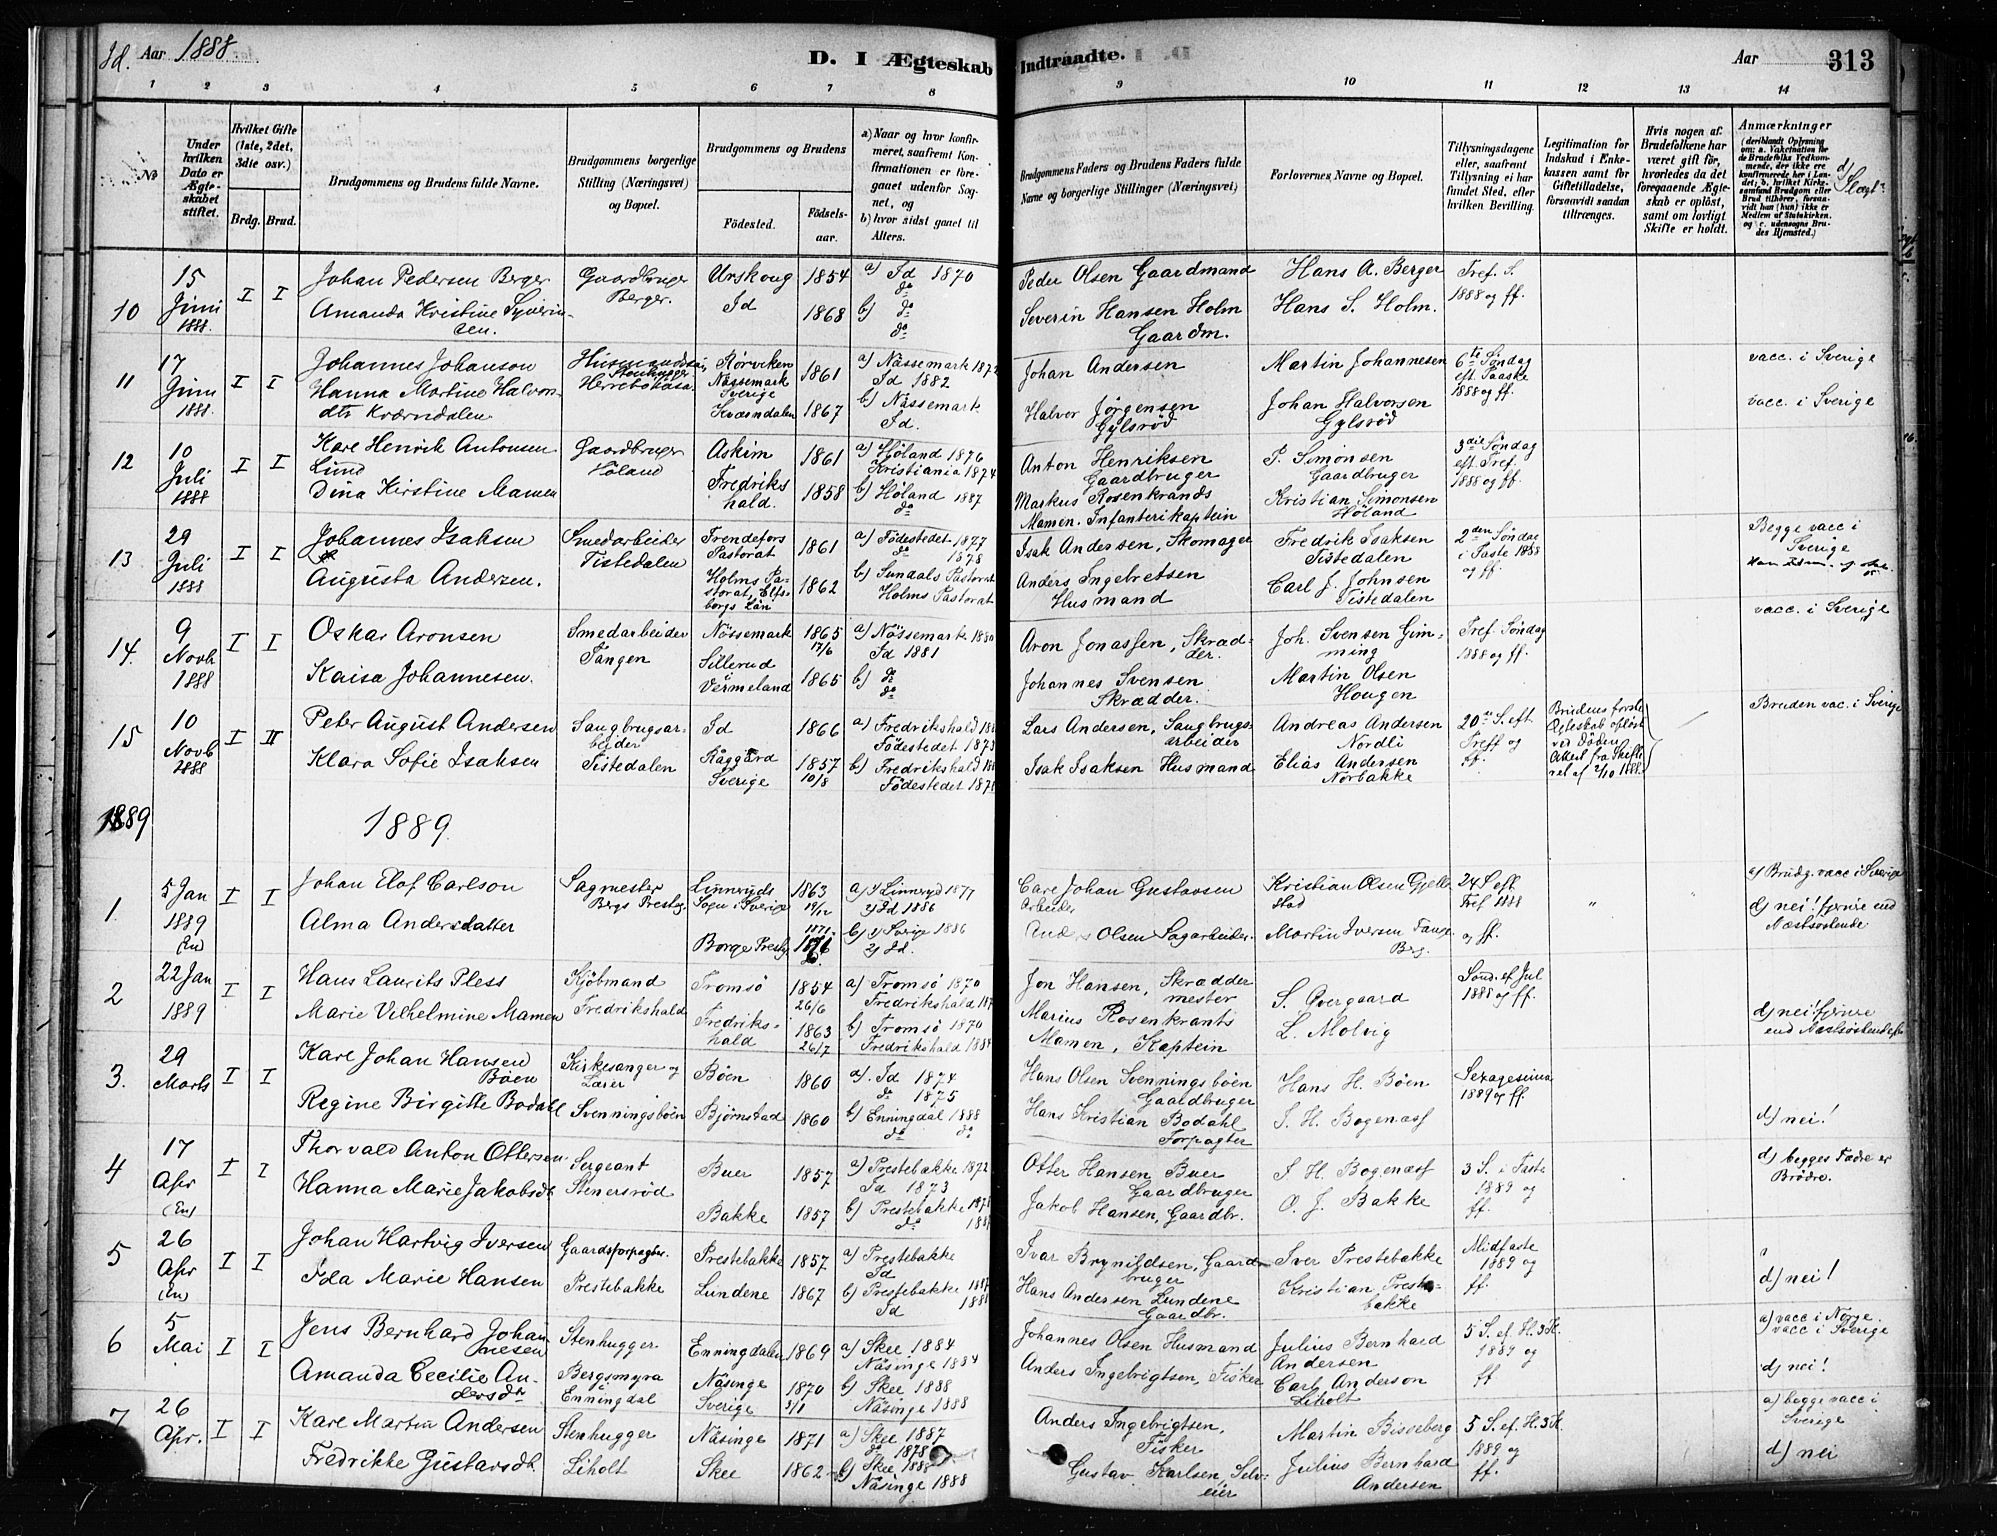 Id. Aar 1888.
D. I Ægteskab Indtraadte.
Aar 313
1 2 3 4 5 6 7 8 9 10 11 12 13 14
No
Under hvilken Dato er Ægteskabet stiftet.
Hvilket Gifte (1ste, 2det, 3die osv.)
Brdg. Brud.
Brudgommens og Brudens fulde Navne.
Brudgommens borgerlige Stilling (Næringsvei) og Bopæl.
Brudgommens og Brudens
Födested. Födselsaar.
a) Naar og hvor konfirmeret, saafremt Konfirmationen er foregaaet udenfor Sognet, og
b) hvor sidst gaaet til Alters.
Brudgommens Faders og Brudens Faders fulde Navne og borgerlige Stillinger (Næringsvei)
Forlovernes Navne og Bopæl.
Tillysningsdagene eller, saafremt Tillysning ei har fundet Sted, efter hvilken Bevilling.
Legitimation for Indskud i Enkekassen samt for Giftetilladelse, forsaavidt saadan tiltrænges.
Hvis nogen af Brudefolkene har været gift før, hvorledes da det foregaaende Ægteskab er oplöst, samt om lovligt Skifte er holdt.
Anmærkninger (deriblandt Oplysning om: a. Vakcination for de Brudefolks Vedkommende, der ikke ere konfirmerede her i Landet; b. hvilket Kirkesamfund Brudgom eller Brud tilhører, forsaavidt han (hun) ikke er Medlem af Statskirken, og c. udensogns Brudes Hjemsted.)
d) Slægt
10
15 Juni 1888.
I I
Johan Pedersen Berger
Amanda Kristine Syverinsen.
Gaardbruger Berger.
Urskoug 1854
Id 1868
a) Id 1870
do
b) do
do
Peder Olsen Gaardmand
Severin Hansen Holm Gaardm.
Hans A. Berger
Hans S. Holm.
Tref. S. 1888 og ff.
11
17 Juni 1888.
I I
Johannes Johanson
Hanna Martine Halvorsdtr Kværndalen
Rörviken Nässemark Sverige 1861
Kværndalen 1867
a) Nässemark 1872
Id 1882
b) Nässemark
Id.
Johan Andersen
Halvor Jörgensen Gylsröd
Martin Johannesen
Johan Halvorsen Gylsröd
6te Søndag eft. Paaske 1888 og ff.
vacc. i Sverige
vacc. i Sverige
12
10 Juli 1888
I I
Karl Henrik Antonsen Lund
Dina Kirstine Mamen
Gaardbruger Höland
Askim 1861
Fredrikshald. 1858
a) Höland 1876
Kristiania 1874
b) Höland 1887
do
Anton Henriksen Gaardbruger
Markus Rosenkrands Mamen. Infanterikaptein
P. Simonsen Gaardbruger
Kristian Simonsen Höland
3die Søndag eft. Tref. 1888 og ff.
13
29 Juli 1888
I I
Johannes Isaksen
Augusta Andersen.
Smedarbeider Tistedalen
Frendefors Pastorat 1861
Holms Pastorat, Elfsborgs Län 1862
a) Födestedet 1877
do 1878
b) Sundals Pastorat
Holms Pastorat
Isak Andersen, Skomager
Anders Ingebretsen Husmand
Fredrik Isaksen Tistedalen
Carl J. Johnsen Tistedalen
2den Søndag i Faste 1888 og ff.
Begge vacc i Sverige
14.
9 Novb 1888
I I
Oskar Aronsen
Kaisa Johannesen.
Smedarbeider Tangen
Nössemark 1865 17/6
Sillerud Vermeland 1865
a) Nössemark 1880
Id 1881
b) do
do
Aron Jonassen, Skrædder.
Johannes Svensen Skrædder.
Joh. Svensen Gimming
Martin Olsen Hougen
Tref. Søndag 1888 og ff.
vacc. i Sverige
15
10 Novb 1888
I II
Peter August Andersen
Klara Sofie Isaksen
Saugbrugsarbeider Tistedalen
Id 1866
Råggärd Sverige 1857 10/8
a) Fredrikshald
Födestedet 1873
b) Fredrikshald
Födestedet
Lars Andersen, Saugbrugsarbeider
Isak Isaksen Husmand
Andreas Andersen Nordli
Elias Andersen Norbakke
20de S. eft Treff og ff.
Brudens første Egteskab opløst ved Døden, Attest fra Skifteret af 2/10 1888.
Bruden vac. i Sverige
1889
1889.
1.
5 Jan 1889
I I
Johan Elof Carlson
Alma Andersdatter
Sagmester Bergs Prestg.
Linneryds Sogn i Sverige 1863 19/12
Borge Prestg. 1871
a) 1) Linneryd 1877
2) Id 1886
b) 1) Sverige 1886
2) Id.
Carl Johan Gustavsen Arbeider
Olsen Sagarbeider
Kristian Olsen Gjellestad
Martin Iversen
24 S. eft Tref 1888 og ff.
"
"
a) Brudg. vacc i Sverige
d) nei! fjernere end Næstsøskende
2
22 Jan 1889
I I
Hans Laurits Pless
Marie Vilhelmine Mamen
Kjöbmand Fredrikshald
Tromsö 1854 26/6
Fredrikshald 1863 26/7
a) Tromsö 1870
Fredrikshald
b) Tromsö 1870
Fredrikshald 1884
Jon Hansen, Skræddermester
Marius Rosenkrants Mamen, Kaptein
S. Overgaard
L. Molvig
Sönd. ef Jul 1888 og ff.
d) nei! fjernere end Næstsøskende
3.
29 Marts
I I
Karl Johan Hansen Böen
Regine Birgitte Bodahl
Kirkesanger og Lærer Svenningsböen
Böen 1860
Bjørnstad 1860
a). Id 1874
do 1875
b) Enningdal 1888
do do
Hans Olsen Svenningsböen Gaardbruger
Hans Kristian Bodahl Forpagter
Hans H. Böen
I. H. Bogenæsf
Sexagesima 1889 og ff.
d) nei!
4
17 Apr
I I
Thorvald Anton Ottersen.
Hanna Marie Jakobsdt
Sergeant Stenersröd
Buer 1857
Bakke 1857
a) Prestebakke 1872
Id 1873
b) Prestebakke
do
Otter Hansen Buer Gaardbruger
Jakob Hansen, Gaardbr.
I. H. Bogenæsf
O. J. Bakke
3 S. i Faste 1889 og ff.
d) begges Fædre er Brödre.
5
26 Apr
I I
Johan Hartvig Iversen
Ida Marie Hansen
Gaardsforpagter. Prestebakke
Prestebakke 1857
Lundene 1867
a) Prestebakke
Id
b) Prestebakke 1887
Id
Ivar Brynildsen, Gaardbruger
Hans Andersen Lundene Gaardbr.
Iver Prestebakke
Kristian Prestebakke
Midfaste 1889 og ff.
d) nei!
6
5 Mai
I I
Jens Bernhard Johannesen
Amanda Cecilie Andersdtr
Stenhugger Bergsmyra Enningdal
Enningdalen 1869
Näsinge Sverige 1870 3/1
a) Skee 1884
Näsinge 1884
b) Skee 1888
Näsinge 1888
Johannes Olsen Husmand
Anders Ingebrigtsen, Fisker
Julius Bernhard Andersen
Carl Anderson Liholt
5 S. ef. H. 3 K. 1889 og ff
a) vacc i Norge.
vacc i Sverige
d) nei!
7
26 Apr.
I I
Karl Martin Andersen
Fredrikke Gustavsdt.
Stenhugger Liholt
Näsinge 1871
Skee 1862
a) Skee 1887
do 1878
b) Skee 1888
Näsinge 1888
Anders Ingebrigtsen, Fisker
Gustav Karlsen, Selveier
Martin Bisseberg
Julius Bernhard Andersen
5 S. ef. H. 3 K. 1889 og ff.
a) begge vacc i Sverige
d) nei